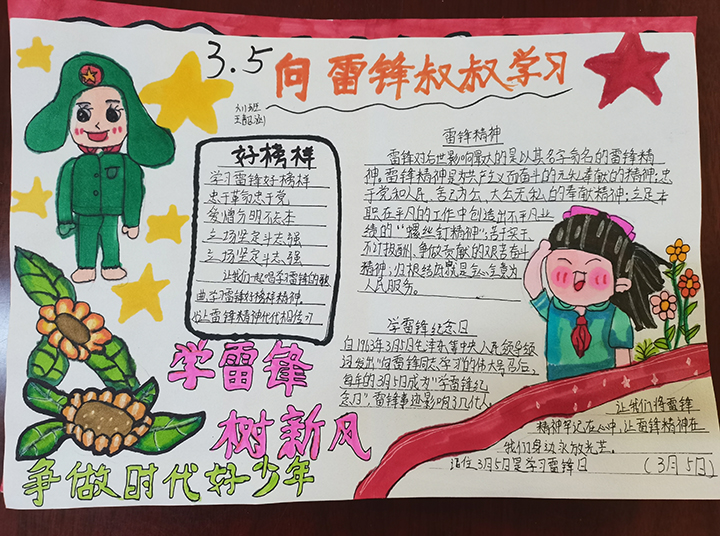 3.5 向雷锋叔叔学习
好榜样
学习雷锋好榜样
忠于革命忠于党
爱憎分明不忘本
立场坚定斗志强
立场坚定斗志强
让我们一起唱学习雷锋的歌
曲,学习雷锋好榜样精神
让雷锋精神代代相传
雷锋精神
雷锋对后世影响最大的是以其名字命名的雷锋精
神。雷锋精神是为共产主义而奋斗的无私奉献的精神;忠
于党和人民、舍己为公、大公无私的奉献精神;立足本
职在平凡的工作中创造出不平凡业
绩的"螺丝钉精神";苦干实干、
不计报酬、争做贡献的艰苦奋斗
精神;归根结底就是全心全意为
人民服务。
学雷锋纪念日
自1963年3月5日毛泽东等中央人民领导题
词发出"向雷锋同志学习的伟大号召后,
每年的3月5日成为"学雷锋纪
念日",雷锋事迹影响了几代人。
让我们将雷锋
精神牢记在心中,让雷锋精神在
我们身边永放光芒。
记住,3月5日是学习雷锋日 (3月5日)
学雷锋
树新风
争做时代好少年